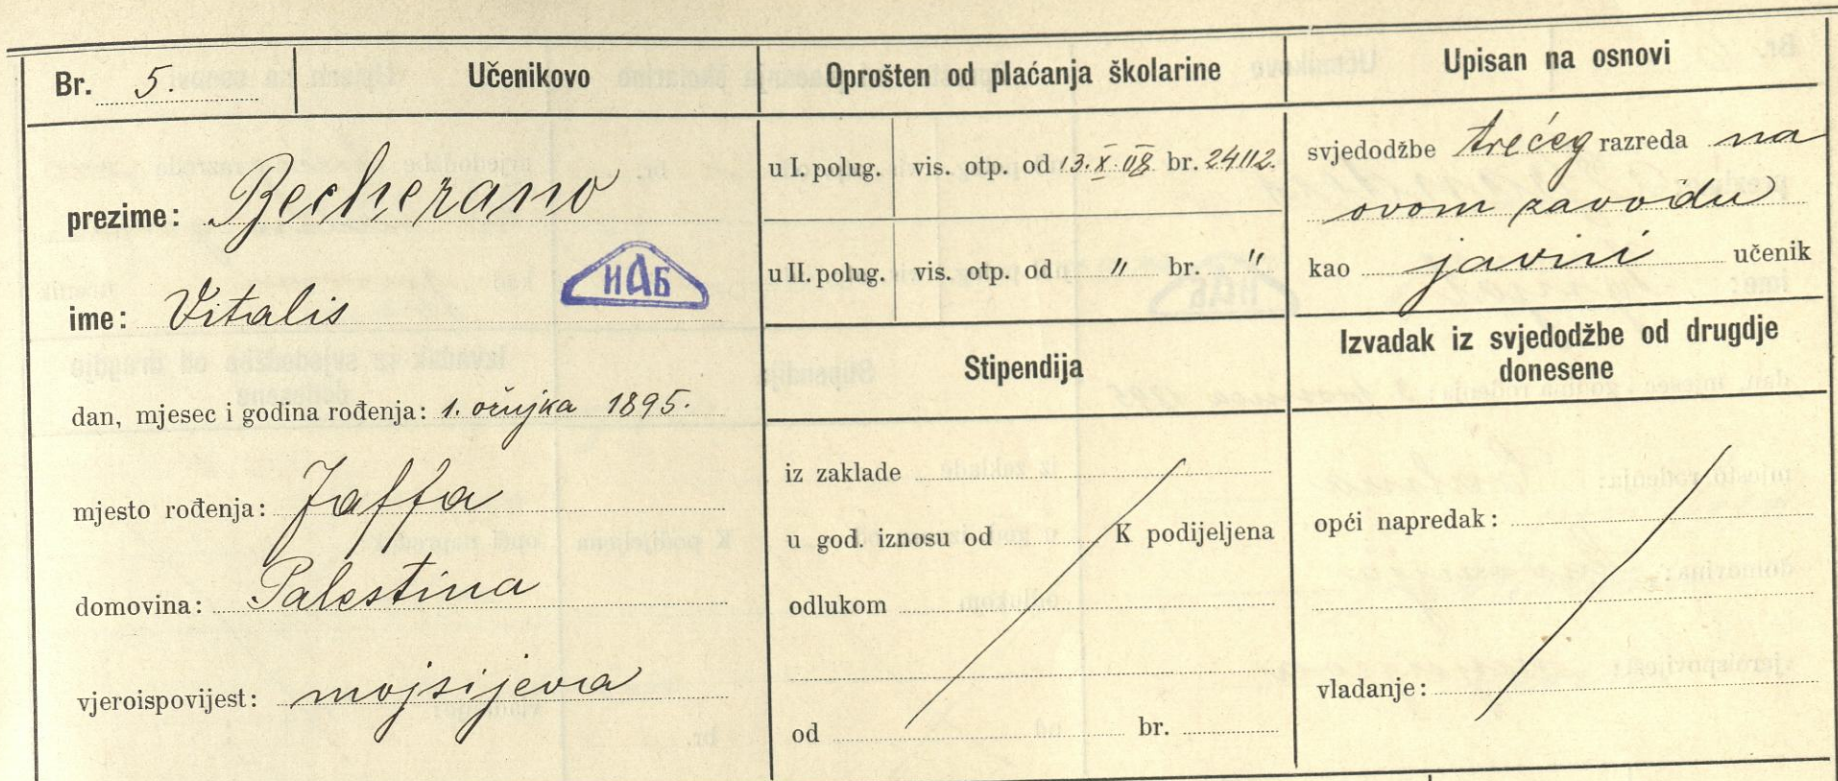 Br. 5.
Učenikovo
prezime: Becherano
ime: Vitalis
ИАБ
dan, mjesec i godina rođenja: 1. ožujka 1895.
mjesto rođenja: Jaffa
domovina: Palestina
vjeroispovijest: mojsijeva
Oprošten od plaćanja školarine
u I. polug. vis. otp. od 13. X. 08 br. 24112.
u II. polug. vis. otp. od " br. "
Stipendija
iz zaklade
u god. iznosu od K podijeljena
odlukom
od br.
Upisan na osnovi
svjedodžbe trećeg razreda na
ovom zavodu
kao javni učenik
Izvadak iz svjedodžbe od drugdje
donesene
opći napredak:
vladanje: